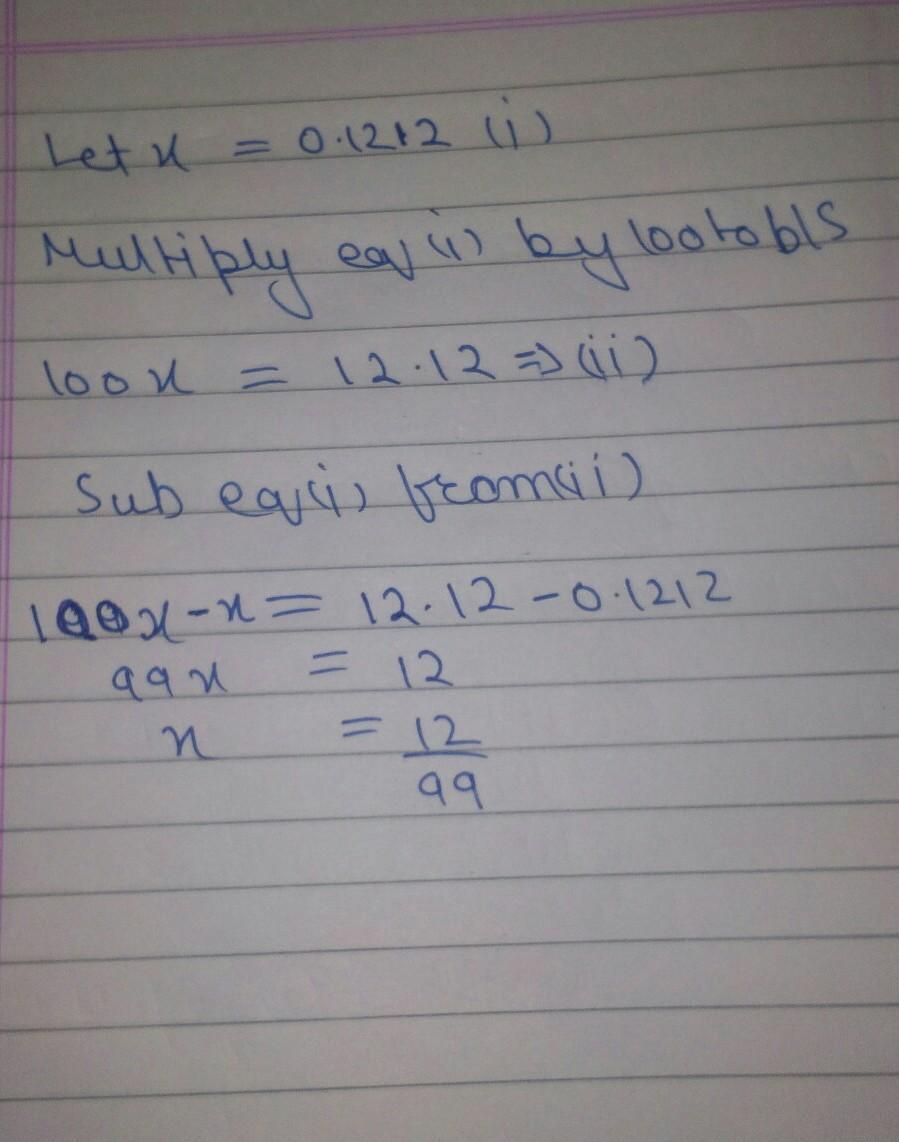 Let x = 0.1212 (i)
Multiply eq (i) by 100 to b/S
100x = 12.12 ⇒ (ii)
Sub eq (i) from (ii)
100x - x = 12.12 - 0.1212
99x = 12
x = 12
99